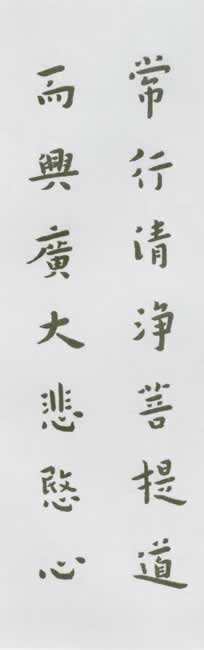 常行清淨菩提道
而興廣大悲愍心